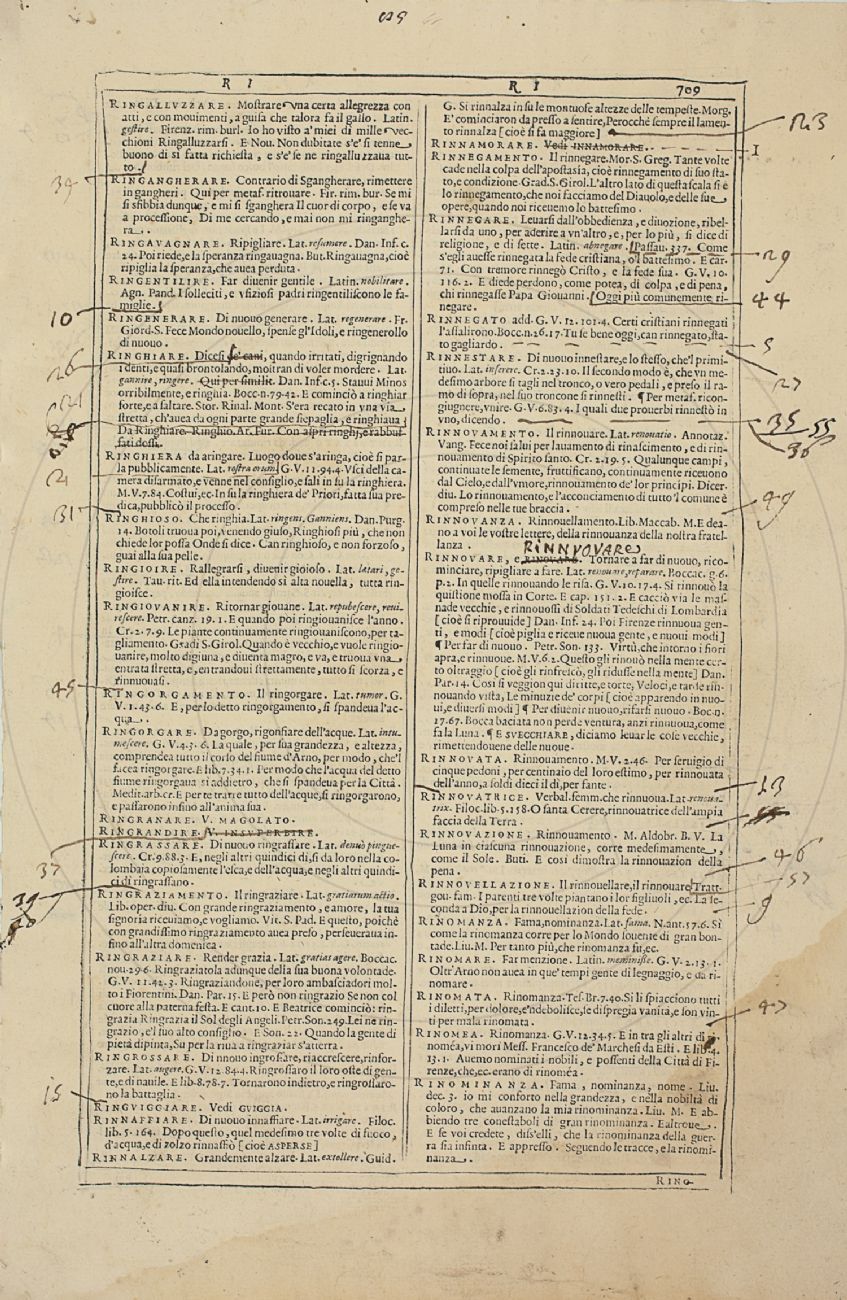 R I
R I
709
RINGALLVZZARE. Mostrare vna certa allegrezza con
atti, e con mouimenti, a guisa che talora fa il gallo. Latin.
gestire. Firenz. rim. burl. Io ho visto a' miei dì mille vec-
chioni Ringalluzzarsi. E Nou. Non dubitate s'e' si tenne
buono di sì fatta richiesta, e s'e' se ne ringalluzzaua tut-
to.
RINGANGHERARE. Contrario di Sgangherare, rimettere
in gangheri. Qui per metaf. ritrouare. Fir. rim. bur. Se mi
si sfibbia dunque, e mi si sganghera Il cuor di corpo, e se va
a processione, Di me cercando, e mai non mi ringanghe-
ra.
RINGAVAGNARE. Ripigliare. Lat. resumere. Dan. Inf. c.
24. Poi riede, e la speranza ringauagna. But. Ringauagna, cioè
ripiglia la speranza, che auea perduta.
RINGENTILIRE. Far diuenir gentile. Latin. nobilitare.
Agn. Pand. I solleciti, e vfiziosi padri ringentiliscono le fa-
miglie.
RINGENERARE. Di nuouo generare. Lat. regenerare. Fr.
Giord. S. Fece Mondo nouello, spense gl'Idoli, e ringenerollo
di nuouo.
RINGHIARE. Dicesi de' cani, quando irritati, digrignando
i denti, e quasi brontolando, mostran di voler mordere. Lat.
gannire, ringere. Qui per similit. Dan. Inf. c. 5. Stauui Minos
orribilmente, e ringhia. Bocc. n. 79. 42. E cominciò a ringhiar
forte, e a saltare. Stor. Rinal. Mont. S'era recato in vna via
stretta, ch'auea da ogni parte grande siepaglia, e ringhiaua
Da Ringhiare. Ringhio. Ar. Fur. Con aspri ringhi, e rabbuf-
fati dossi.
RINGHIERA da aringare. Luogo doue s'aringa, cioè si par-
la pubblicamente. Lat. rostra orum. G. V. 11. 94. 4. Vsci della ca-
mera disarmato, e venne nel consiglio, e salì in su la ringhiera.
M. V. 7. 84. Costui, ec. In su la ringhiera de' Priori, fatta sua pre-
dica, pubblicò il processo.
RINGHIOSO. Che ringhia. Lat. ringens. Ganniens. Dan. Purg.
14. Botoli truoua poi, venendo giuso, Ringhiosi più, che non
chiede lor possa Onde si dice. Can ringhioso, e non forzoso,
guai alla sua pelle.
RINGIOIRE. Rallegrarsi, diuenir gioioso. Lat. lætari, ge-
stire. Tau. rit. Ed ella intendendo sì alta nouella, tutta rin-
gioisce.
RINGIOVANIRE. Ritornar giouane. Lat. repubescere, reui-
rescere. Petr. canz. 19. 1. E quando poi ringiouanisce l'anno.
Cr. 2. 7. 9. Le piante continuamente ringiouaniscono, per ta-
gliamento. Gradi S. Girol. Quando è vecchio, e vuole ringio-
uanire, molto digiuna, e diuenta magro, e va, e truoua vna
entrata stretta, e, entrandoui strettamente, tutto si scorza, e
rinnuouasi.
RINGORGAMENTO. Il ringorgare. Lat. tumor. G.
V. 1. 43. 6. E, per lo detto ringorgamento, si spandeua l'ac-
qua.
RINGORGARE. Da gorgo, rigonfiare dell'acque. Lat. intu-
mescere. G. V. 4. 3. 6. La quale, per sua grandezza, e altezza,
comprendea tutto il corso del fiume d'Arno, per modo, che'l
facea ringorgare. E lib. 7. 34. 1. Per modo che l'acqua del detto
fiume ringorgaua sì addietro, che si spandeua per la Città.
Medit. arb. cr. E per te tratte tutto dell'acque, si ringorgarono,
e passarono infino all'anima sua.
RINGRANARE. V. MAGOLATO.
RINGRANDIRE. V. INSVPERBIRE.
RINGRASSARE. Di nuouo ringrassare. Lat. denuò pingue-
scere. Cr. 9. 88. 3. E, negli altri quindici dì, si da loro nella co-
lombaia copiosamente l'esca, e dell'acqua, e negli altri quindi-
ci dì ringrassano.
RINGRAZIAMENTO. Il ringraziare. Lat. gratiarum actio.
Lib. oper. diu. Con grande ringraziamento, e amore, la tua
signoria riceuiamo, e vogliamo. Vit. S. Pad. E questo, poichè
con grandissimo ringraziamento auea preso, perseueraua in-
fino all'altra domenica.
RINGRAZIARE. Render grazia. Lat. gratias agere. Boccac.
nou. 29. 6. Ringraziatola adunque della sua buona volontade.
G. V. 11. 42. 3. Ringraziandone, per loro ambasciadori mol-
to i Fiorentini. Dan. Par. 15. E però non ringrazio Se non col
cuore alla paterna festa. E cant. 10. E Beatrice cominciò: rin-
grazia Ringrazia il Sol degli Angeli. Petr. Son. 249. Lei ne rin-
grazio, e'l suo alto consiglio. E Son. 22. Quando la gente di
pietà dipinta, Su per la riua a ringraziar s'atterra.
RINGROSSARE. Di nuouo ingrossare, riaccrescere, rinfor-
zare. Lat. augere. G. V. 12. 84. 4. Ringrossaro il loro oste di gen-
te, e di nauile. E lib. 8. 78. 7. Tornarono indietro, e ringrossaro-
no la battaglia.
RINGVIGGIARE. Vedi GVIGGIA.
RINNAFFIARE. Di nuouo innaffiare. Lat. irrigare. Filoc.
lib. 5. 164. Dopo questo, quel medesimo tre volte di fuoco,
d'acqua, e di zolzo rinnaffiò [cioè ASPERSE]
RINNALZARE. Grandemente alzare. Lat. extollere. Guid.
G. Si rinnalza in su le montuose altezze delle tempeste. Morg.
E' cominciaron da presso a sentire, Perocchè sempre il lamen-
to rinnalza [cioè si fa maggiore]
RINNAMORARE. Vedi INNAMORARE.
RINNEGAMENTO. Il rinnegare. Mor. S. Greg. Tante volte
cade nella colpa dell'apostasia, cioè rinnegamento di suo sta-
to, e condizione. Grad. S. Girol. L'altro lato di questa scala si è
lo rinnegamento, che noi facciamo del Diauolo, e delle sue
opere, quando noi riceuemo lo battesimo.
RINNEGARE. Leuarsi dall'obbedienza, e diuozione, ribel-
larsi da uno, per aderire a vn'altro, e, per lo più, si dice di
religione, e di sette. Latin. abnegare. Passau. 337. Come
s'egli auesse rinnegata la fede cristiana, o'l battesimo. E car.
71. Con tremore rinnegò Cristo, e la fede sua. G. V. 10.
116. 2. E diede perdono, come potea, di colpa, e di pena,
chi rinnegasse Papa Giouanni. Oggi più comunemente ri-
negare.
RINNEGATO add. G. V. 12. 101. 4. Certi cristiani rinnegati
l'assalirono. Bocc. n. 26. 17. Tu se bene oggi, can rinnegato, sta-
to gagliardo.
RINNESTARE. Di nuouo innestare, e lo stesso, che'l primi-
tiuo. Lat. inserere. Cr. 2. 23. 10. Il secondo modo è, che vn me-
desimo arbore si tagli nel tronco, o vero pedali, e preso il ra-
mo di sopra, nel suo troncone si rinnesti. ¶ Per metaf. ricon-
giugnere, vnire. G. V. 6. 83. 4. I quali due prouerbi rinnestò in
vno, dicendo.
RINNOVAMENTO. Il rinnouare. Lat. renouatio. Annotaz.
Vang. Fece noi salui per lauamento di rinascimento, e di rin-
nouamento di Spirito santo. Cr. 2. 19. 5. Qualunque campi,
continuate le semente, fruttificano, continuamente riceuono
dal Cielo, e dall'vmore, rinnouamento de' lor principi. Dicer.
diu. Lo rinnouamento, e l'acconciamento di tutto 'l comune è
compreso nelle tue braccia.
RINNOVANZA. Rinnouellamento. Lib. Maccab. M. E dea-
no a voi le vostre lettere, della rinnouanza della nostra fratel-
lanza.
RINNVOVARE
RINNOVARE, e RINOVARE. Tornare a far di nuouo, rico-
minciare, ripigliare a fare. Lat. renouare, reparare. Boccac. g. 6.
p. 2. In quelle rinnouando le risa. G. V. 10. 17. 4. Si rinnouò la
quistione mossa in Corte. E cap. 151. 2. E cacciò via le mas-
nade vecchie, e rinnouossi di Soldati Tedeschi di Lombardia
[cioè si riprouuide] Dan. Inf. 24. Poi Firenze rinnuoua gen-
ti, e modi [cioè piglia e riceue nuoua gente, e nuoui modi]
¶ Per far di nuouo. Petr. Son. 133. Virtù, che intorno i fiori
apra, e rinnuoue. M. V. 6. 2. Questo gli rinouò nella mente cer-
to oltraggio [cioè gli rinfrescò, gli ridusse nella mente] Dan.
Par. 14. Così si veggion qui diritte, e torte, Veloci, e tarde rin-
nouando vista, Le minuzie de' corpi [cioè apparendo in nuo-
ui, e diuersi modi] ¶ Per diuenir nuouo, rifarsi nuouo. Boc. n.
17. 67. Bocca baciata non perde ventura, anzi rinnuoua, come
fa la Luna. ¶ E SVECCHIARE, diciamo leuar le cose vecchie,
rimettendouene delle nuoue.
RINNOVATA. Rinnouamento. M. V. 2. 46. Per seruigio di
cinque pedoni, per centinaio del loro estimo, per rinnouata
dell'anno, a soldi dieci il dì, per fante.
RINNOVATRICE. Verbal. femm. che rinnuoua. Lat. renoua-
trix. Filoc. lib. 5. 158. O santa Cerere, rinnouatrice dell'ampia
faccia della Terra.
RINNOVAZIONE. Rinnouamento. M. Aldobr. B. V. La
Luna in ciascuna rinnouazione, corre medesimamente,
come il Sole. Buti. E così dimostra la rinnouazion della
pena.
RINNOVELLAZIONE. Il rinnouellare, il rinnouare. Tratt.
gou. fam. I parenti tre volte piantano i lor figliuoli, ec. La se-
conda a Dio, per la rinnouellazion della fede.
RINOMANZA. Fama, nominanza. Lat. fama. N. ant. 57. 6. Sì
come la rinomanza corre per lo Mondo souente di gran bon-
tade. Liu. M. Per tanto più, che rinomanza fu, ec.
RINOMARE. Far menzione. Latin. meminisse. G. V. 2. 13. 1.
Oltr'Arno non auea in que' tempi gente di legnaggio, e da ri-
nomare.
RINOMATA. Rinomanza. Tes. Br. 7. 40. Si li spiacciono tutti
i diletti, per dolore, e'ndebolisce, le dispregia vanità, e son vin-
ti per mala rinomata.
RINOMEA. Rinomanza. G. V. 12. 34. 5. E in tra gli altri di ri-
noméa, vi morì Mess. Francesco de' Marchesi da Esti. E lib. 4.
13. 1. Auemo nominati i nobili, e possenti della Città di Fi-
renze, che, ec. erano di rinoméa.
RINOMINANZA. Fama, nominanza, nome. Liu.
dec. 3. io mi conforto nella grandezza, e nella nobiltà di
coloro, che auanzano la mia rinominanza. Liu. M. E ab-
biendo tre conestaboli di gran rinominanza. E altroue.
E se voi credete, diss'elli, che la rinominanza della guer-
ra sia infinita. E appresso. Seguendo le tracce, e la rinomi-
nanza.
RINO-
39
10
26
31
45
37
39
15
1
29
44
5
27
35
55
36
49
13
46
57
9
47